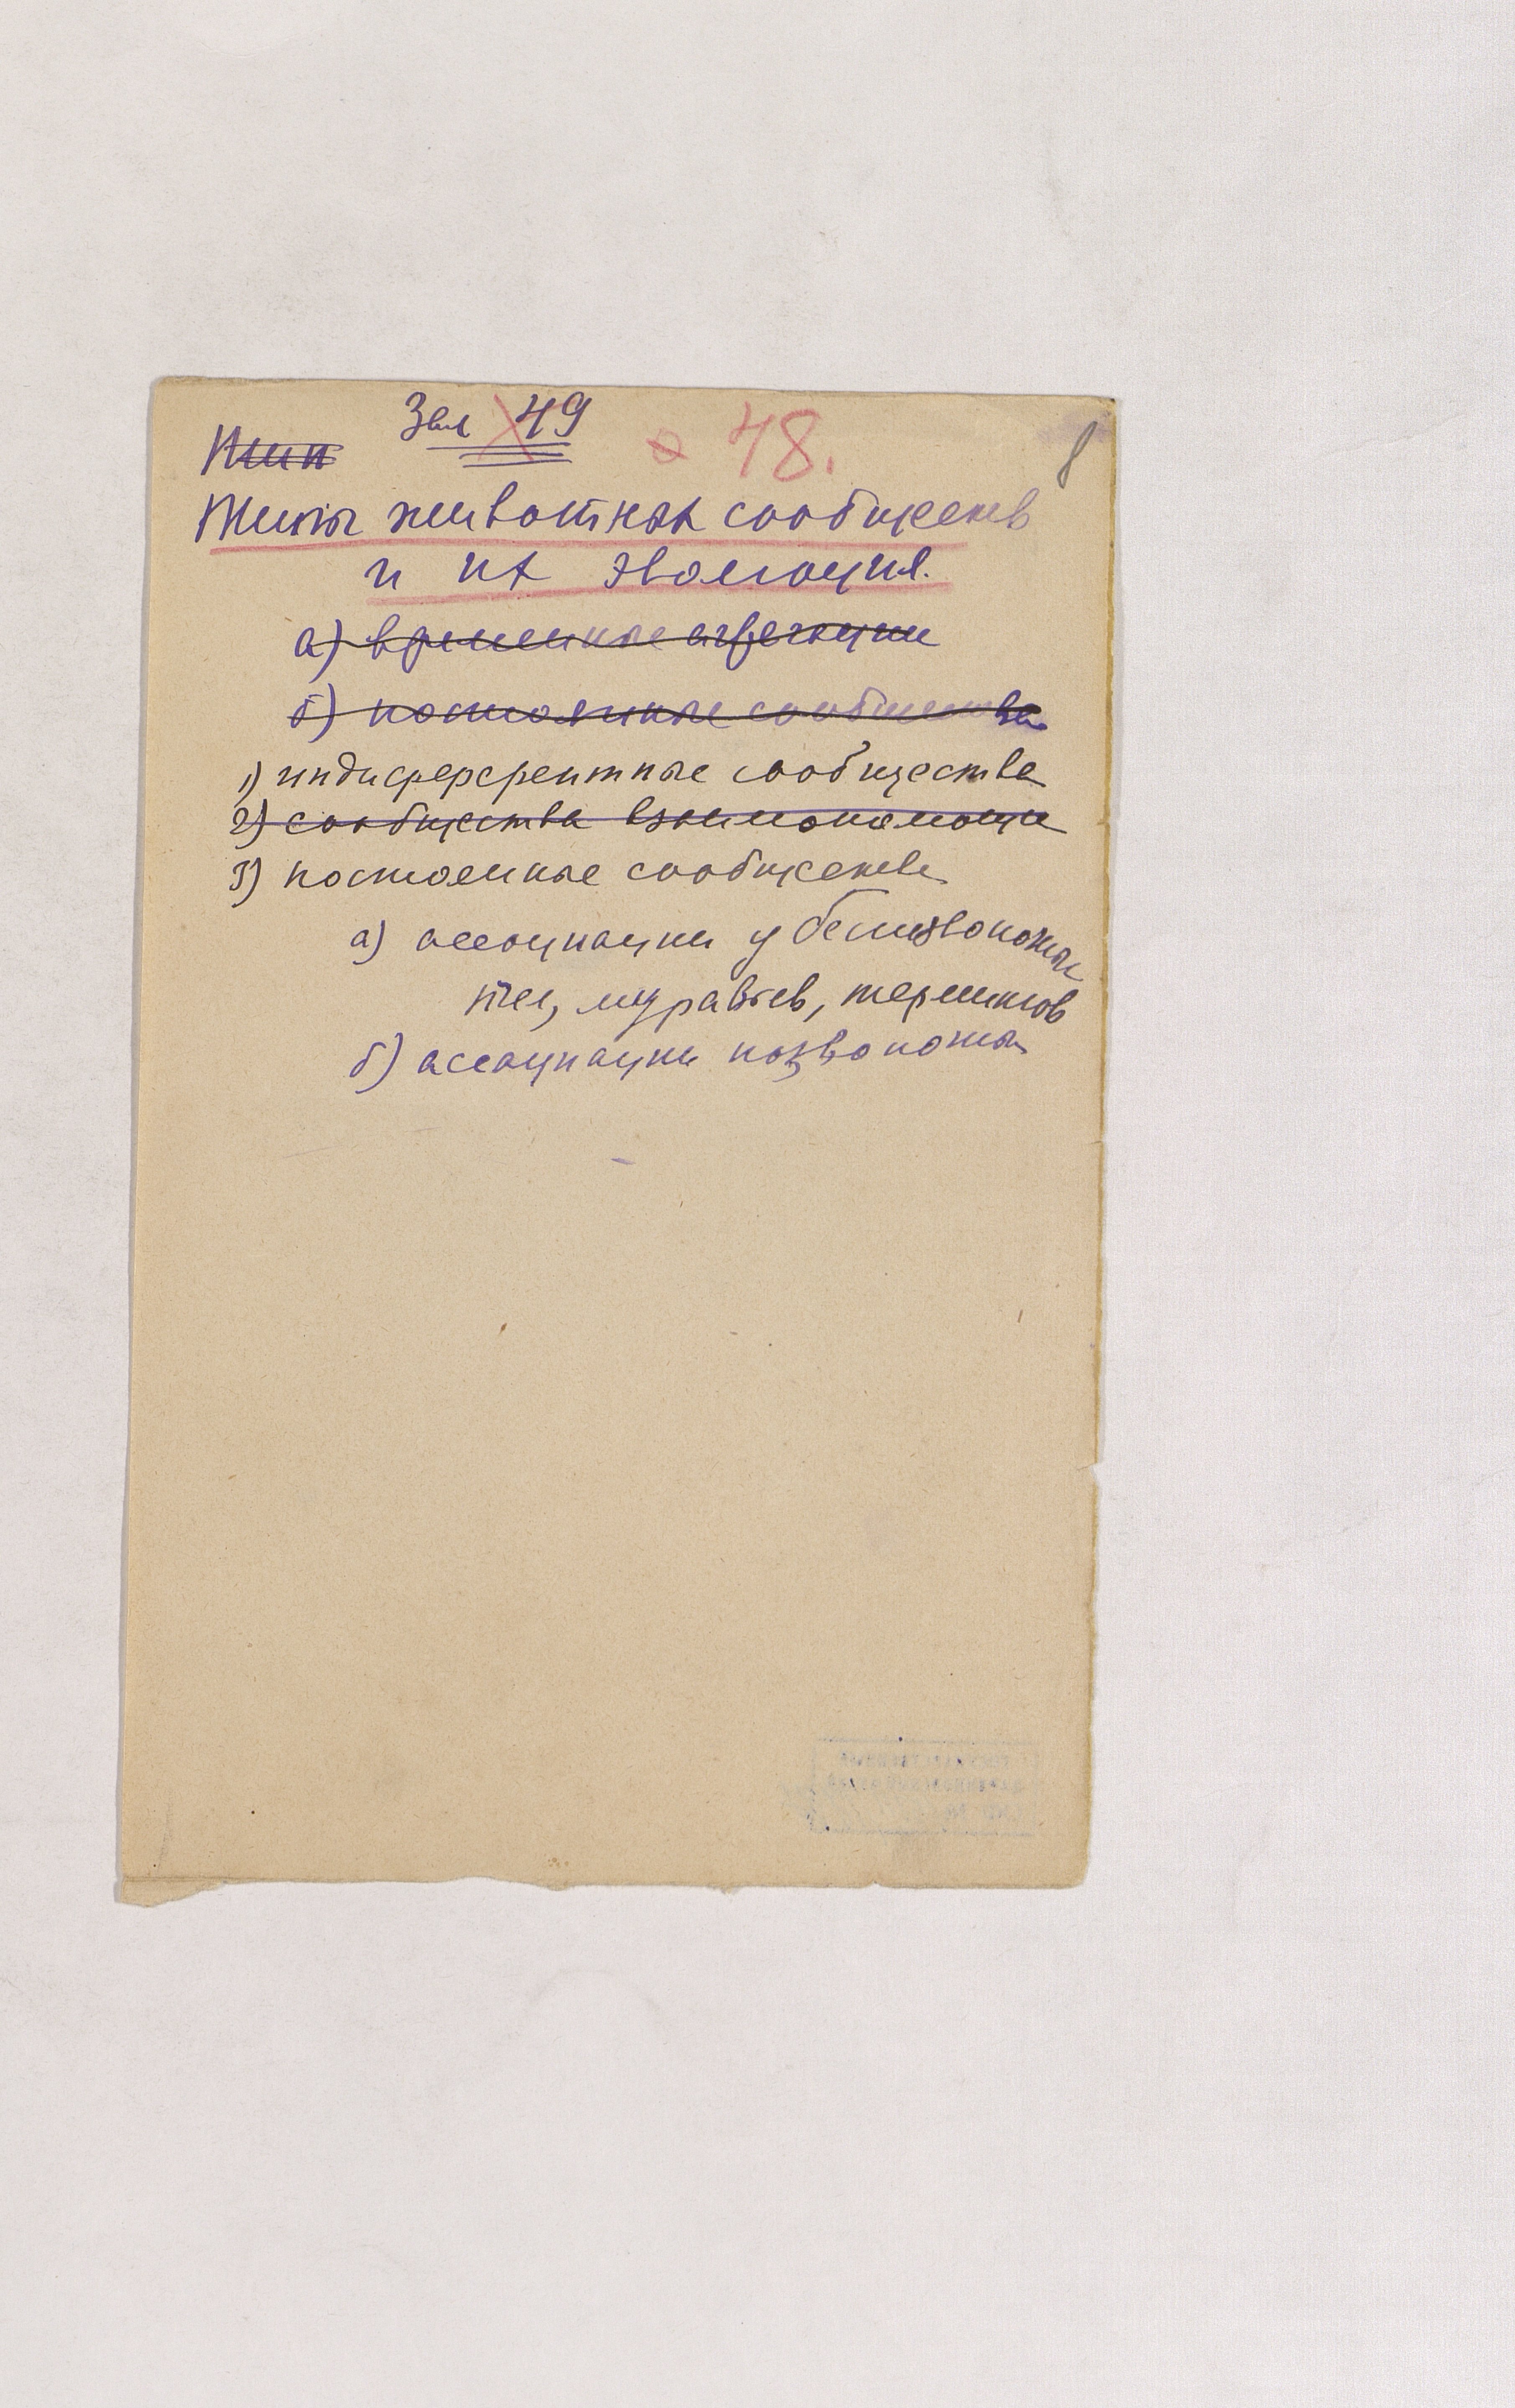 Зал 49 48. 8
Тип
Типы животных сообществ
и их эволюция.
а) временные агрегации
б) постоянные сообщества
1) индифферентные сообщества
2) сообщества взаимопомощи
3) постоянные сообщества
а) ассоциации у беспозвоночных
пчел, муравьев, термитов
б) ассоциации позвоночных